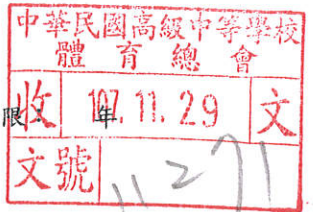 中華民國高級中等學校
體育總會
限：年
收 107.11.29 文
文號 11271